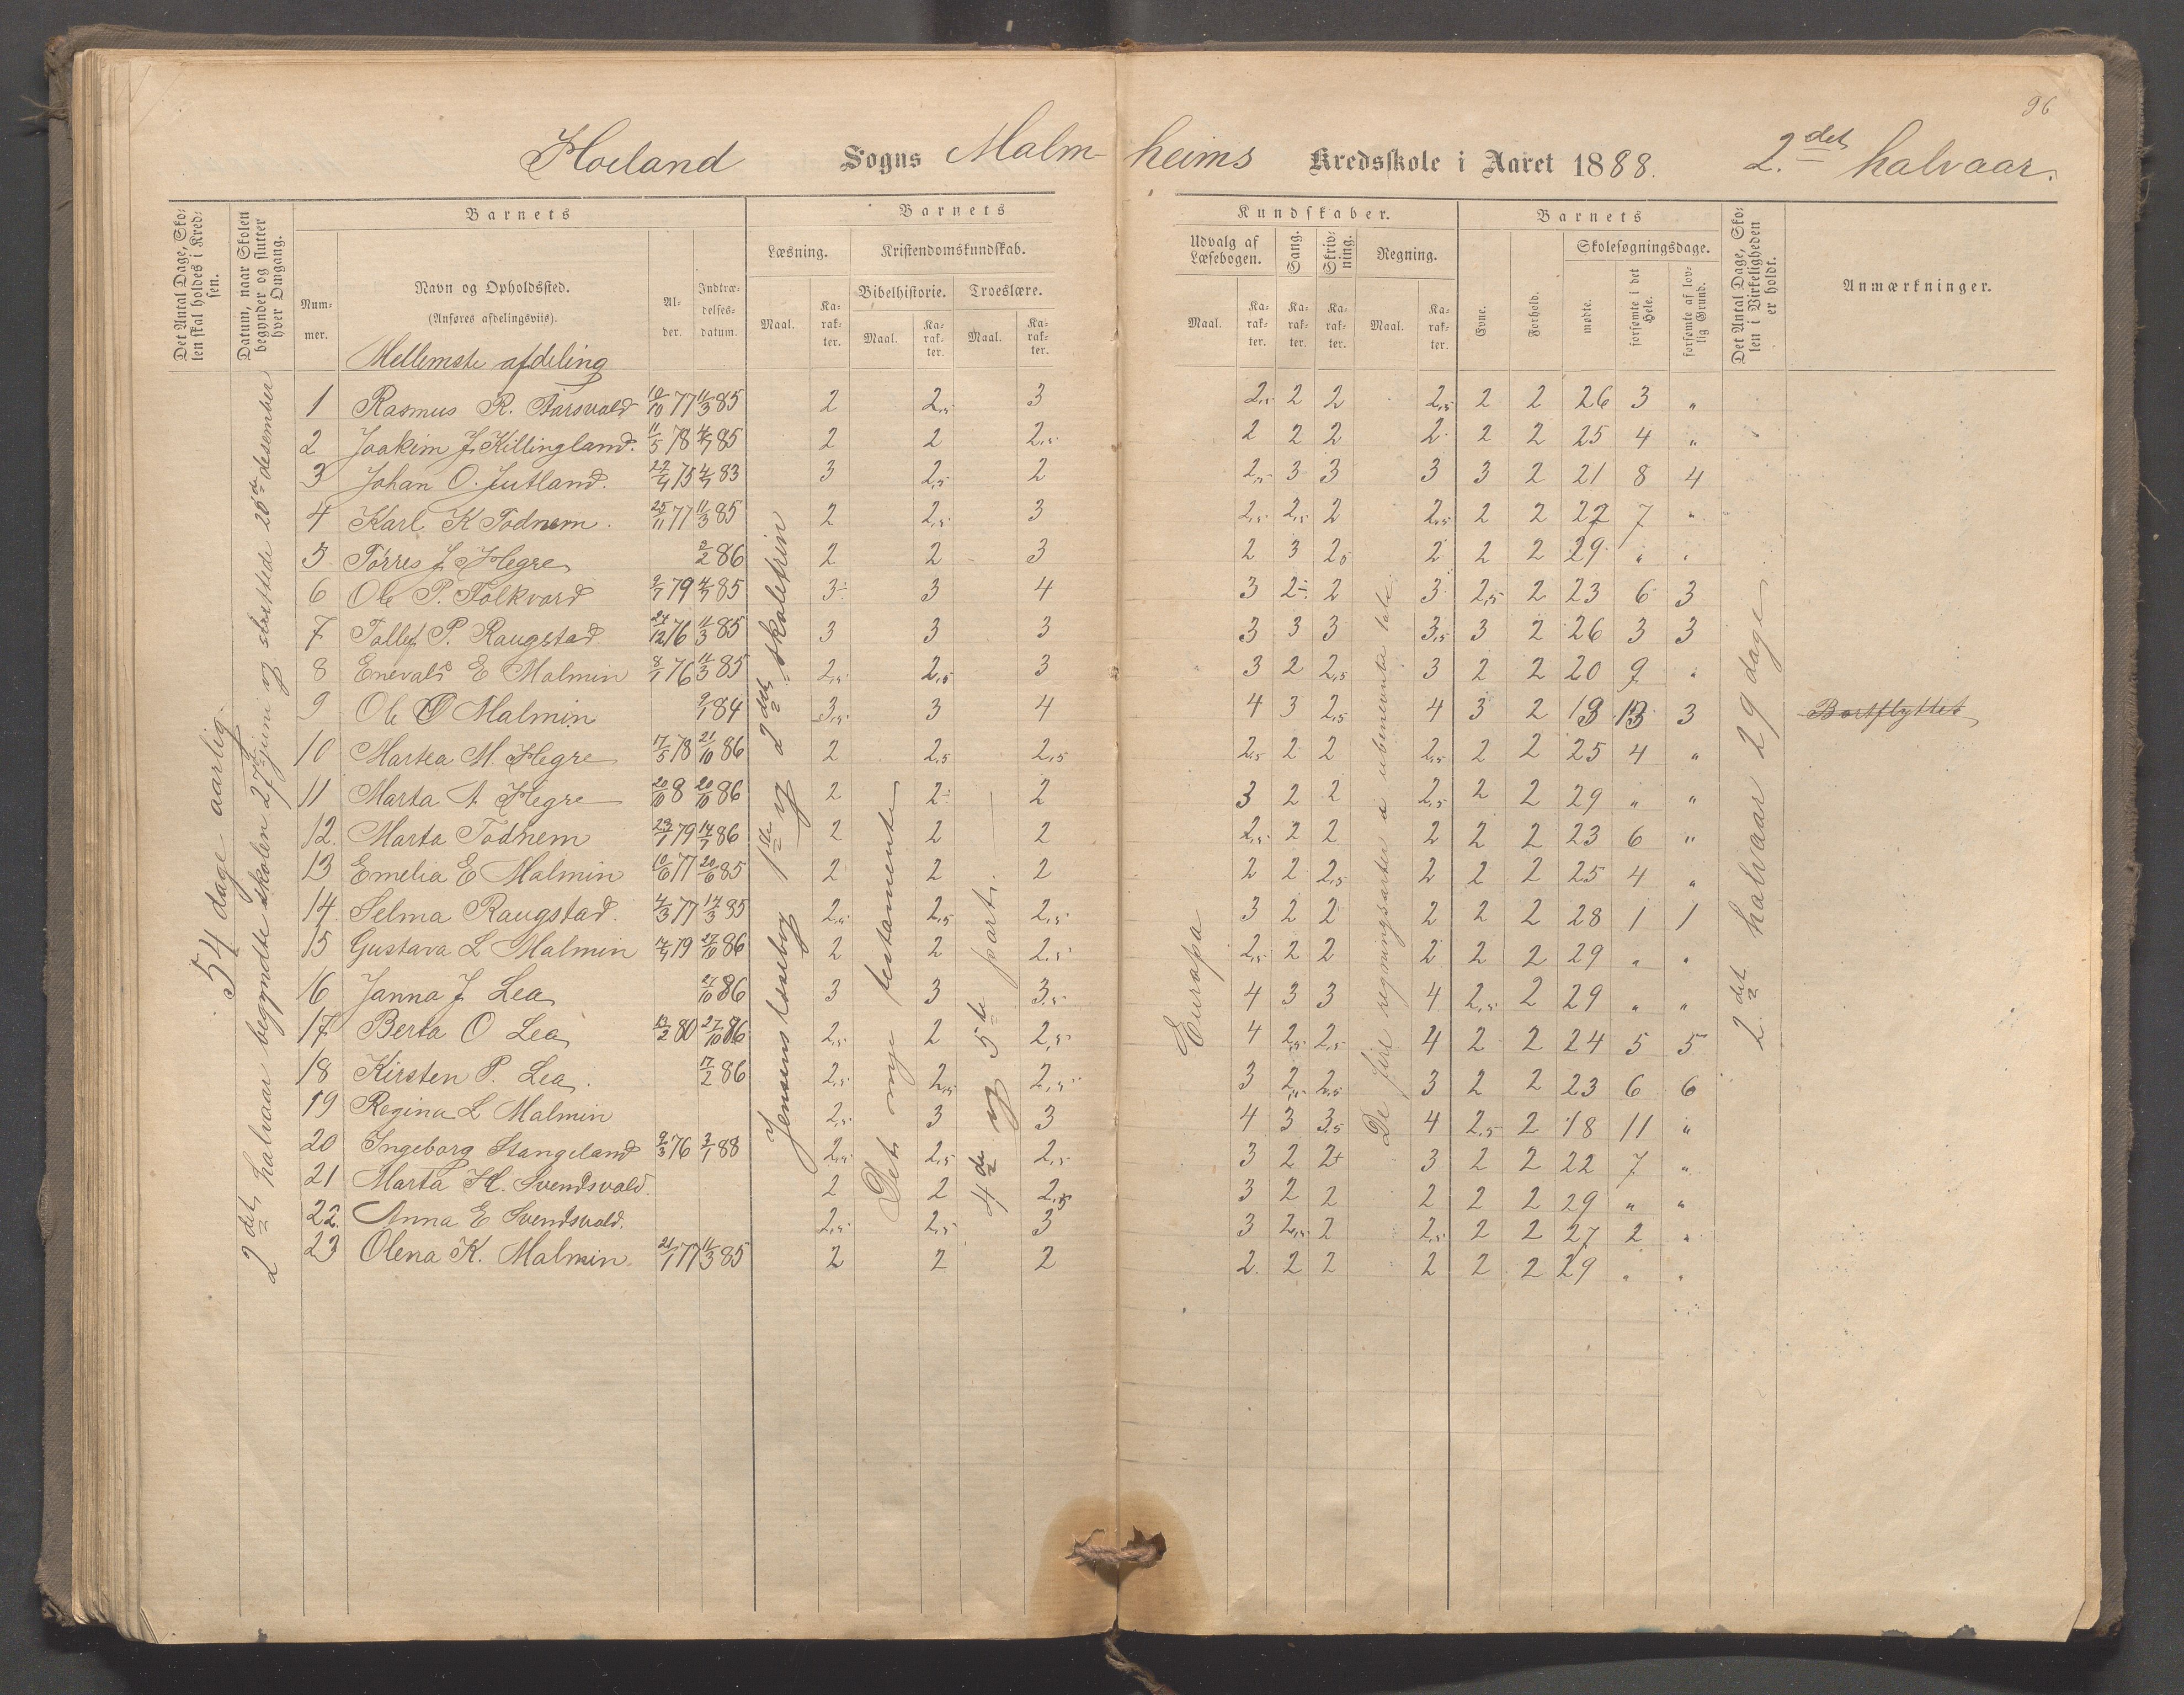 96
Høiland Sogns Malmheims Kredsskole i Aaret 1888. 2.det halvaar.
Det Antal Dage, Skolen skal holdes i Kredsen.
Datum, naar Skolen begynder og slutter hver Omgang.
Barnets
Nummer.
Navn og Opholdssted.
(Anføres afdelingsviis).
Alder.
Indtrædelsesdatum.
Barnets Kundskaber.
Læsning.
Maal. Karakter.
Kristendomskundskab.
Bibelhistorie. Troeslære.
Maal. Karakter. Maal. Karakter.
Udvalg af Læsebogen.
Maal. Karakter.
Sang. Karakter.
Skrivning. Karakter.
Regning.
Maal. Karakter.
Barnets
Evne. Forhold.
Skolesøgningsdage.
mødte. forsømte i det Hele. forsømte af lovlig Grund.
Det Antal Dage, Skolen i Virkeligheden er holdt.
Anmærkninger.
54 dage aarlig.
2det halvaar begyndte skolen 27de juni og sluttede 20de desember
Mellemste afdeling
Jensens læsebog 1ste og 2det skoletrin
Det nye testamente
4de og 5te part.
Europa
De fire regningsarter i ubenevnte tale
2det halvaar 29 dage
1 Rasmus R. Aarsvold 10/10 77 11/3 85 2 2,5 3 2,5 2 2 2,5 2 2 26 3 "
2 Joakim J. Killingland. 11/5 78 4/7 85 2 2 2,5 2 2 2 2 2 2 25 4 "
3 Johan O. Jutland. 22/4 75 4/7 83 3 2,5 2 2,5 3 3 3 3 2 21 8 4
4 Karl K Todnem. 25/11 77 11/3 85 2 2,5 3 2,5 2,5 2 2,5 2 2 22 7 "
5 Tørres J. Hegre 2/2 86 2 2 3 2 3 2,5 2 2 2 29 " "
6 Ole P. Folkvord 2/7 79 4/7 85 3- 3 4 3 2- 2 3 2,5 2 23 6 3
7 Tollef P. Raugstad 24/12 76 11/3 85 3 3 3 3 3 3 3,5 3 2 26 3 3
8 Enevald E Malmin 8/1 76 11/3 85 2,5 2,5 3 3 2 2,5 3 2 2 20 9 "
9 Ole O Malmin 9/1 84 3,5 3 4 4 3 2,5 4 3 2 13 13 3 Bortflyttet
10 Martea M. Hegre 17/5 78 21/10 86 2 2,5 2,5 2,5 2 2 2,5 2 2 25 4 "
11 Marta A Hegre 20/10 8 20/10 86 2 2- 2 3 2 2 2,5 2 2 29 " "
12. Marta Todnem 23/1 79 14/7 86 2 2 2 2,5 2 2 2 2 2 23 6 "
13 Emelia E Malmin 10/6 77 20/6 85 2 2 2 2 2 2,5 2 2 2 25 4 "
14. Selma Raugstad. 4/3 77 14/3 85 2,5 2,5 2,5 3 2 2 2 2 2 28 1 1
15 Gustava L Malmin 79 27/10 86 2 2 2,5 2,5 2 2 2 2 2 29 " "
16 Janna J Lea 27/10 86 3 3 3,5 4 3 3 4 2,5 2 29 " "
17 Berta O Lea 13/2 80 27/10 86 2,5 2 2,5 4 2,5 2,5 4 2 2 24 5 5
18 Kirsten P. Lea. 17/2 86 2,5 2,5 2,5 3 2,5 2,5 3 2 2 23 6 6
19 Regina L Malmin 2,5 3 3 4 3 3,5 4 2,5 2 18 11 "
20 Ingeborg Stangeland 9/3 76 3/1 88 2,5 2,5 2,5 3 2 2+ 3 2 2 22 7 "
21 Marta H. Svendsvold. 2 2 2,5 3 2 2 2 2 2 29 " "
22. Anna E Svendsvold. 2,5 2,5 3 3 2,5 2 2,5 2 2 27 2 "
23 Olena K. Malmin 21/1 77 11/3 85 2 2 2 2 2 2 2 2 2 29 " "